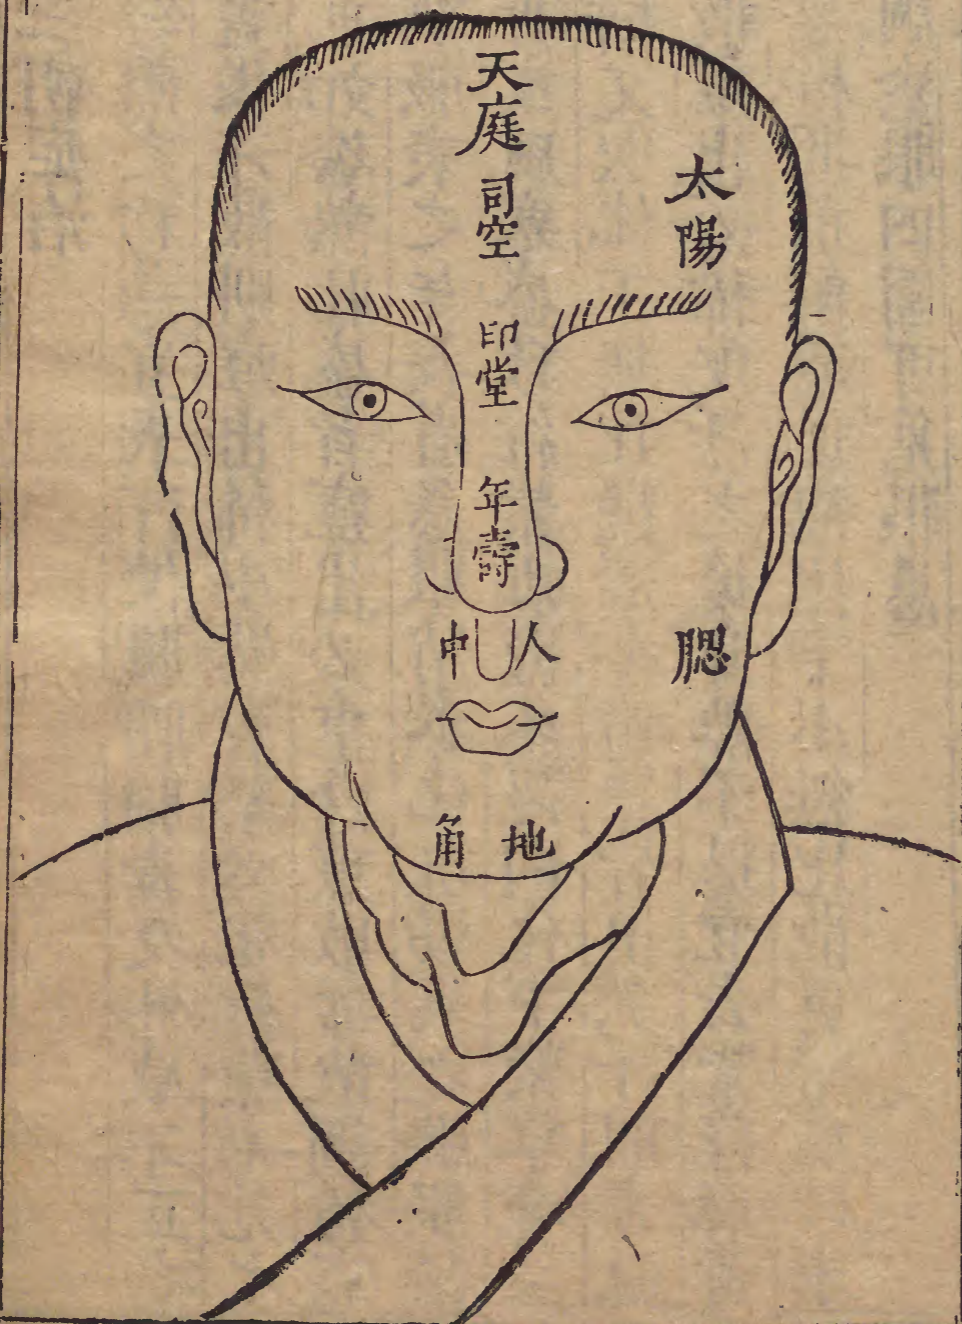 天庭
司空
太陽
印堂
年壽
人中
腮
地角